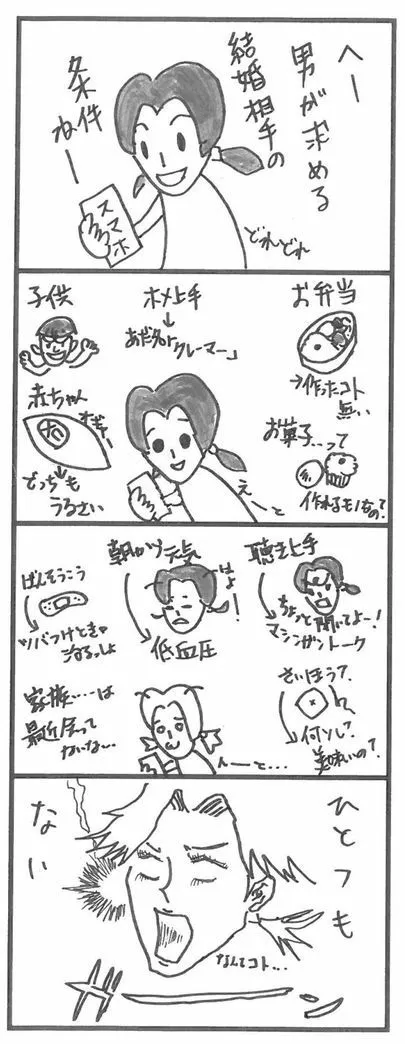 へー
男が求める
結婚相手の
条件
ねー
スマホ
どれどれ
お弁当
→作ったコト
無い
お菓子…って
作れるモノなの?
ホメ上手
↓
あだ名は
「クレーマー」
子供
赤ちゃん
オギャー
どっちも
うるさい
えーと
聴き上手
ちょっと聞いてよー!
マシンガントーク
さいほう?
何ソレ?
美味いの?
朝から元気
はよー!
低血圧
ばんそうこう
ツバつけときゃ
治るっしょ
家族……は
最近会って
ないな…
んーと…
ひとつも
ない
なんてコト…
ガーン